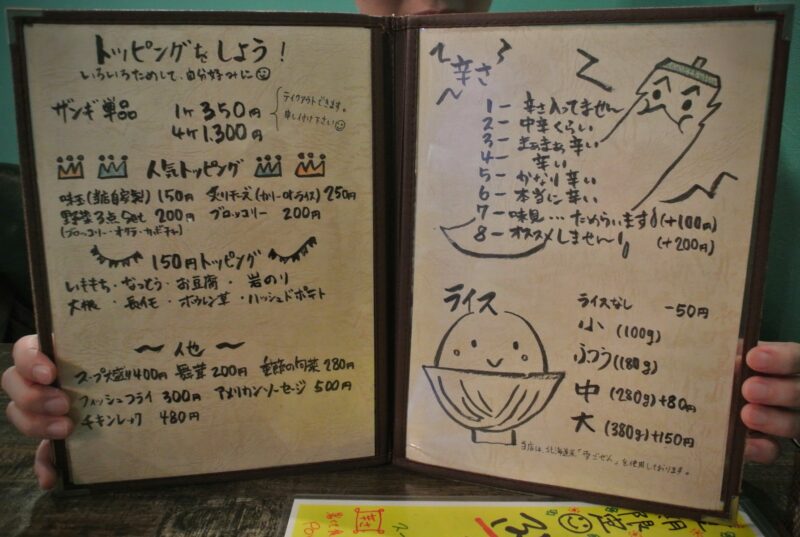 トッピングをしよう！
いろいろためして、自分好みに
ザンギ単品 1ケ 350円
4ケ 1,300円
テイクアウトできます。
申し付け下さい
人気トッピング
味玉(当店自家製) 150円 炙りチーズ(カリーorライス) 250円
野菜3点Set 200円 ブロッコリー 200円
(ブロッコリー・オクラ・カボチャ)
150円トッピング
しもきち・なっとう・お豆腐・岩のり
大根・長イモ・ホウレン草・ハッシュドポテト
〜他〜
スープ大盛り400円 舞茸200円 季節の旬菜280円
フィッシュフライ 300円 アメリカンソーセージ 500円
チキンレッグ 480円
辛さ
1ー辛さ入ってません
2ー中辛くらい
3ーまぁまぁ辛い
4ー辛い
5ーかなり辛い
6ー本当に辛い
7ー味見…ためらいます(+100円)
8ーオススメしません (+200円)
ライス
ライスなし -50円
小 (100g)
ふつう(180g)
中 (280g)+80円
大 (380g)+150円
当店は、北海道米「きらら